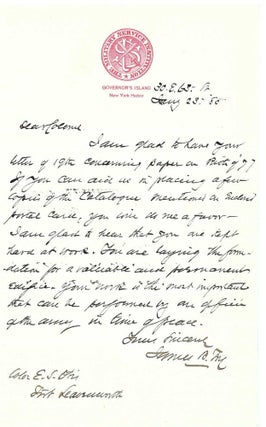 THE MILITARY SERVICE INSTITUTION
GOVERNOR'S ISLAND
New York Harbor
30. E. 63. St
Jany 23d '85
Dear Colonel
I am glad to have your
letter of 19th concerning paper on Riots of '77
If you can aid us in placing a few
copies of the Catalogue mentioned on enclosed
postal card, you will do me a favor—
I am glad to hear that you are kept
hard at work. You are laying the foun-
dation for a valuable and permanent
edifice. Your work is the most important
that can be performed by an officer
of the army in time of peace.
Yours Sincerely
James B. Fry
Colon E. S. Otis
Fort Leavenworth